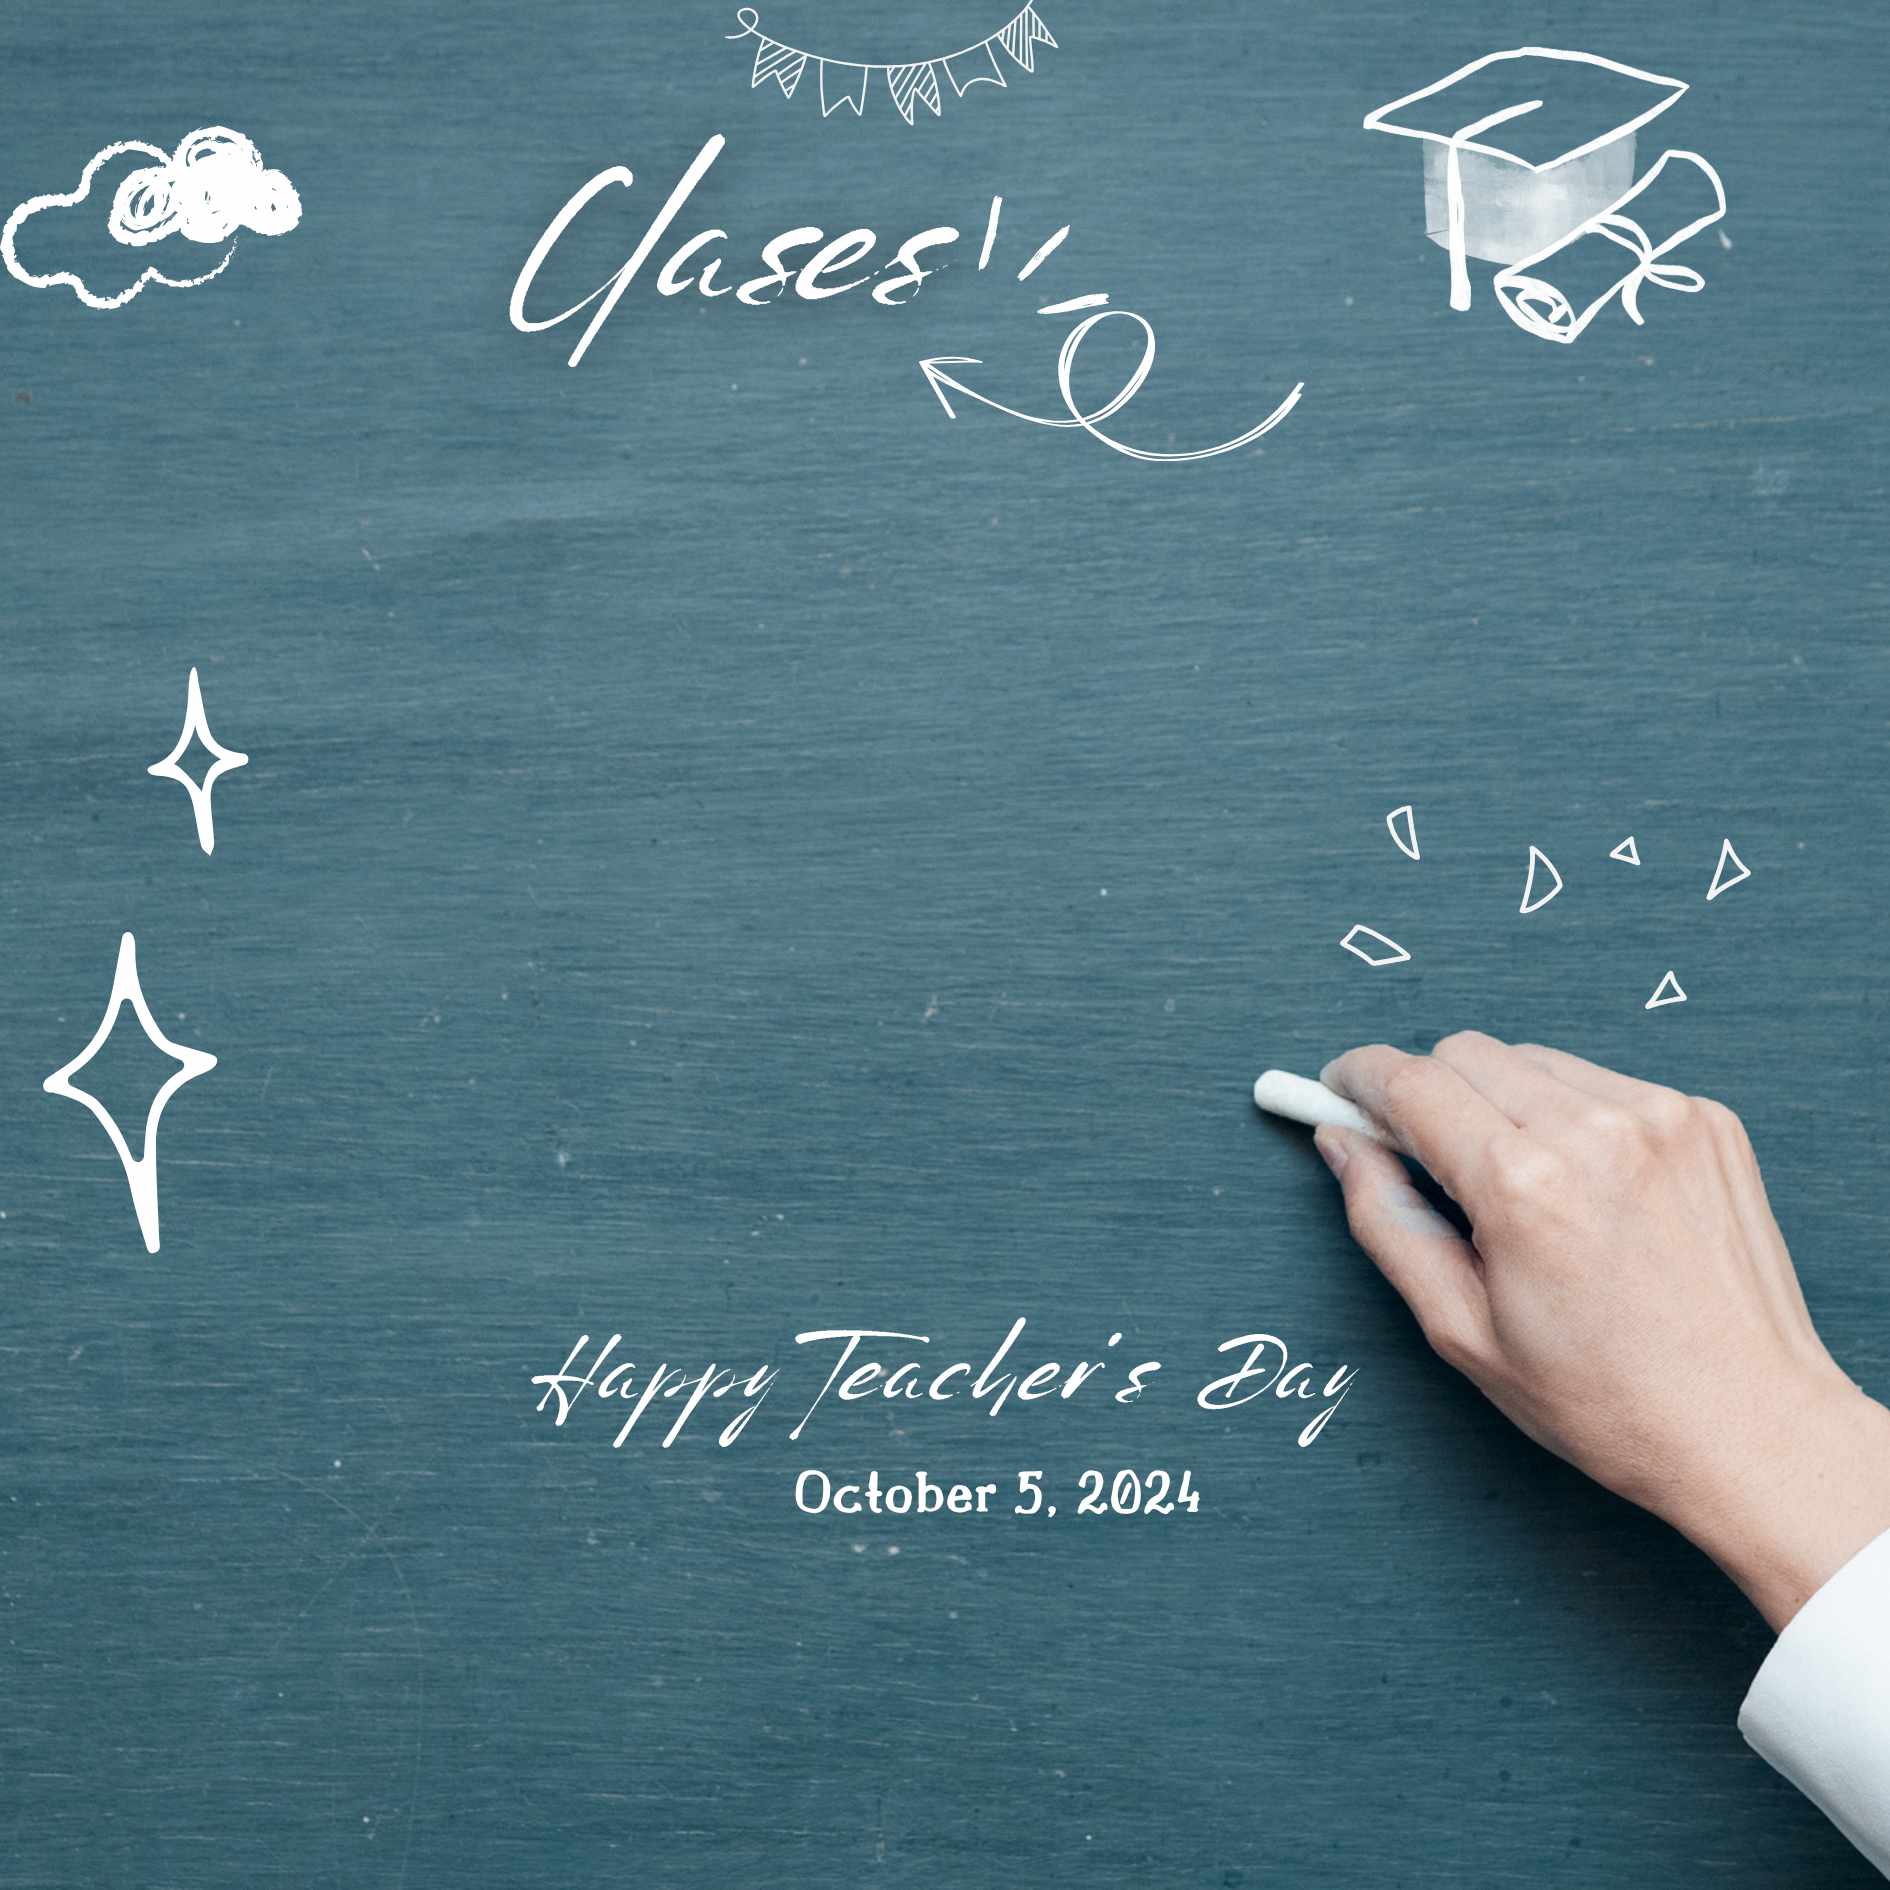 Clases
Happy Teacher's Day
October 5, 2024